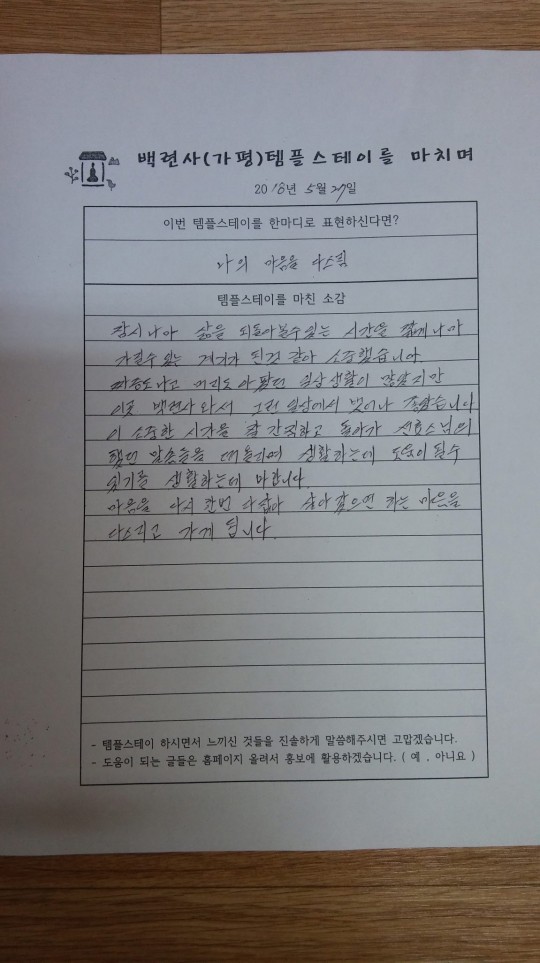 백련사(가평)템플스테이를 마치며
2018년 5월 27일
이번 템플스테이를 한마디로 표현하신다면?
나의 마음을 다스림
템플스테이를 마친 소감
잠시나마 삶을 되돌아볼수있는 시간을 짧게나마
가질수 있는 계기가 된것 같아 소중했습니다
짜증도나고 머리도 아팠던 일상생활이 많았지만
이곳 백련사 와서 그런 일상에서 벗어나 좋았습니다
이 소중한 시간을 잘 간직하고 돌아가 선효스님의
했던 말씀들을 떠올리며 생활하는데 도움이 될수
있기를 생활하는데 바랍니다.
마음을 다시 한번 다잡아 살아갔으면 하는 마음을
다스리고 가게 됩니다.
- 템플스테이 하시면서 느끼신 것들을 진솔하게 말씀해주시면 고맙겠습니다.
- 도움이 되는 글들은 홈페이지 올려서 홍보에 활용하겠습니다. ( 예 . 아니요 )